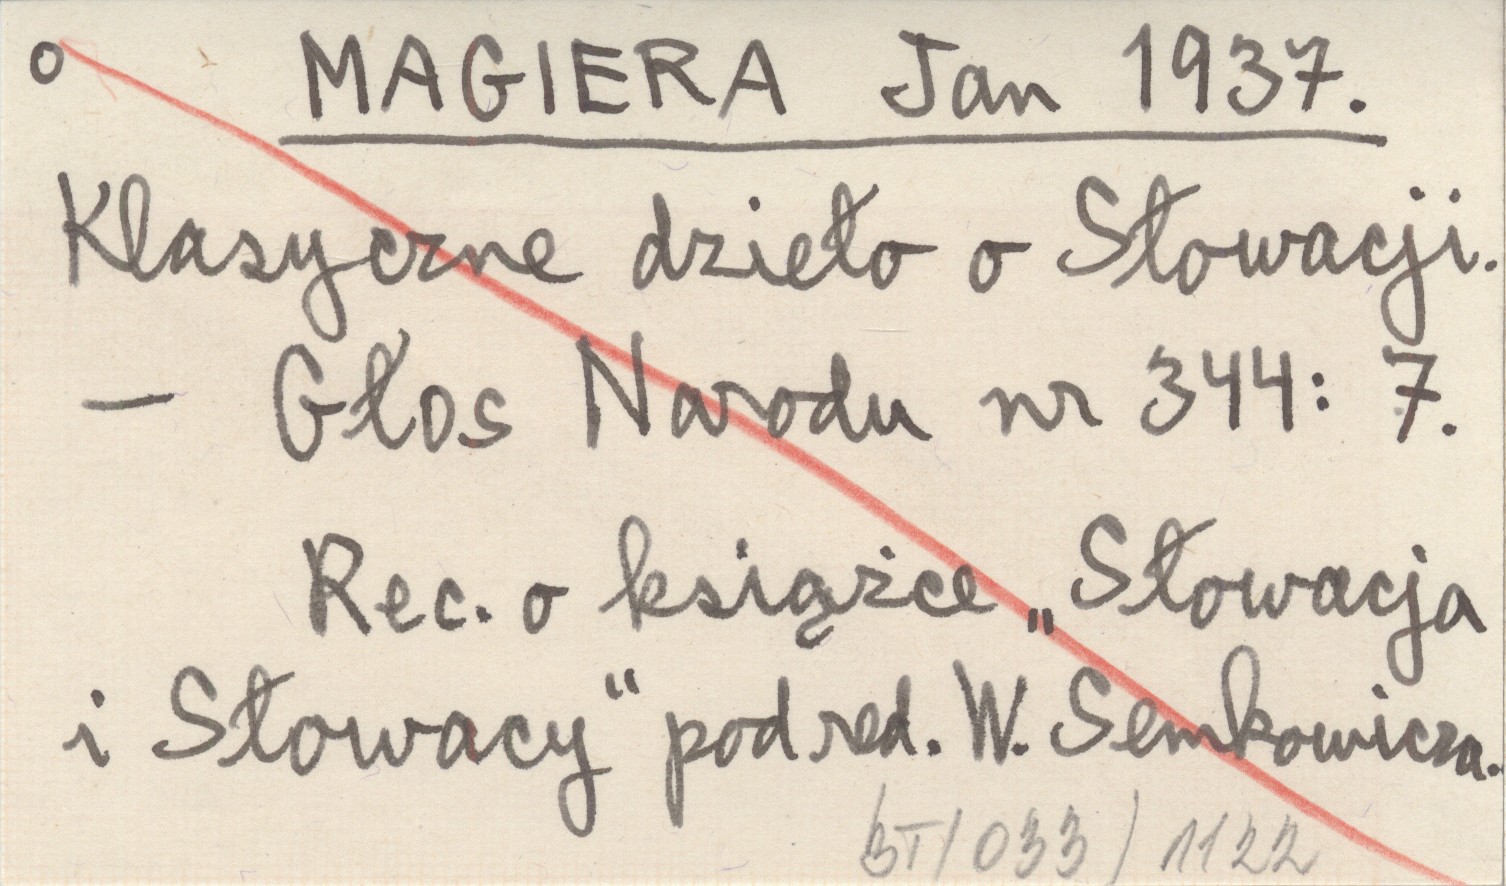 o MAGIERA Jan 1937.
Klasyczne dzieło o Słowacji.
— Głos Narodu nr 344: 7.
Rec. o książce „Słowacja
i Słowacy“ pod red. W. Semkowicza.
BT/033/1122